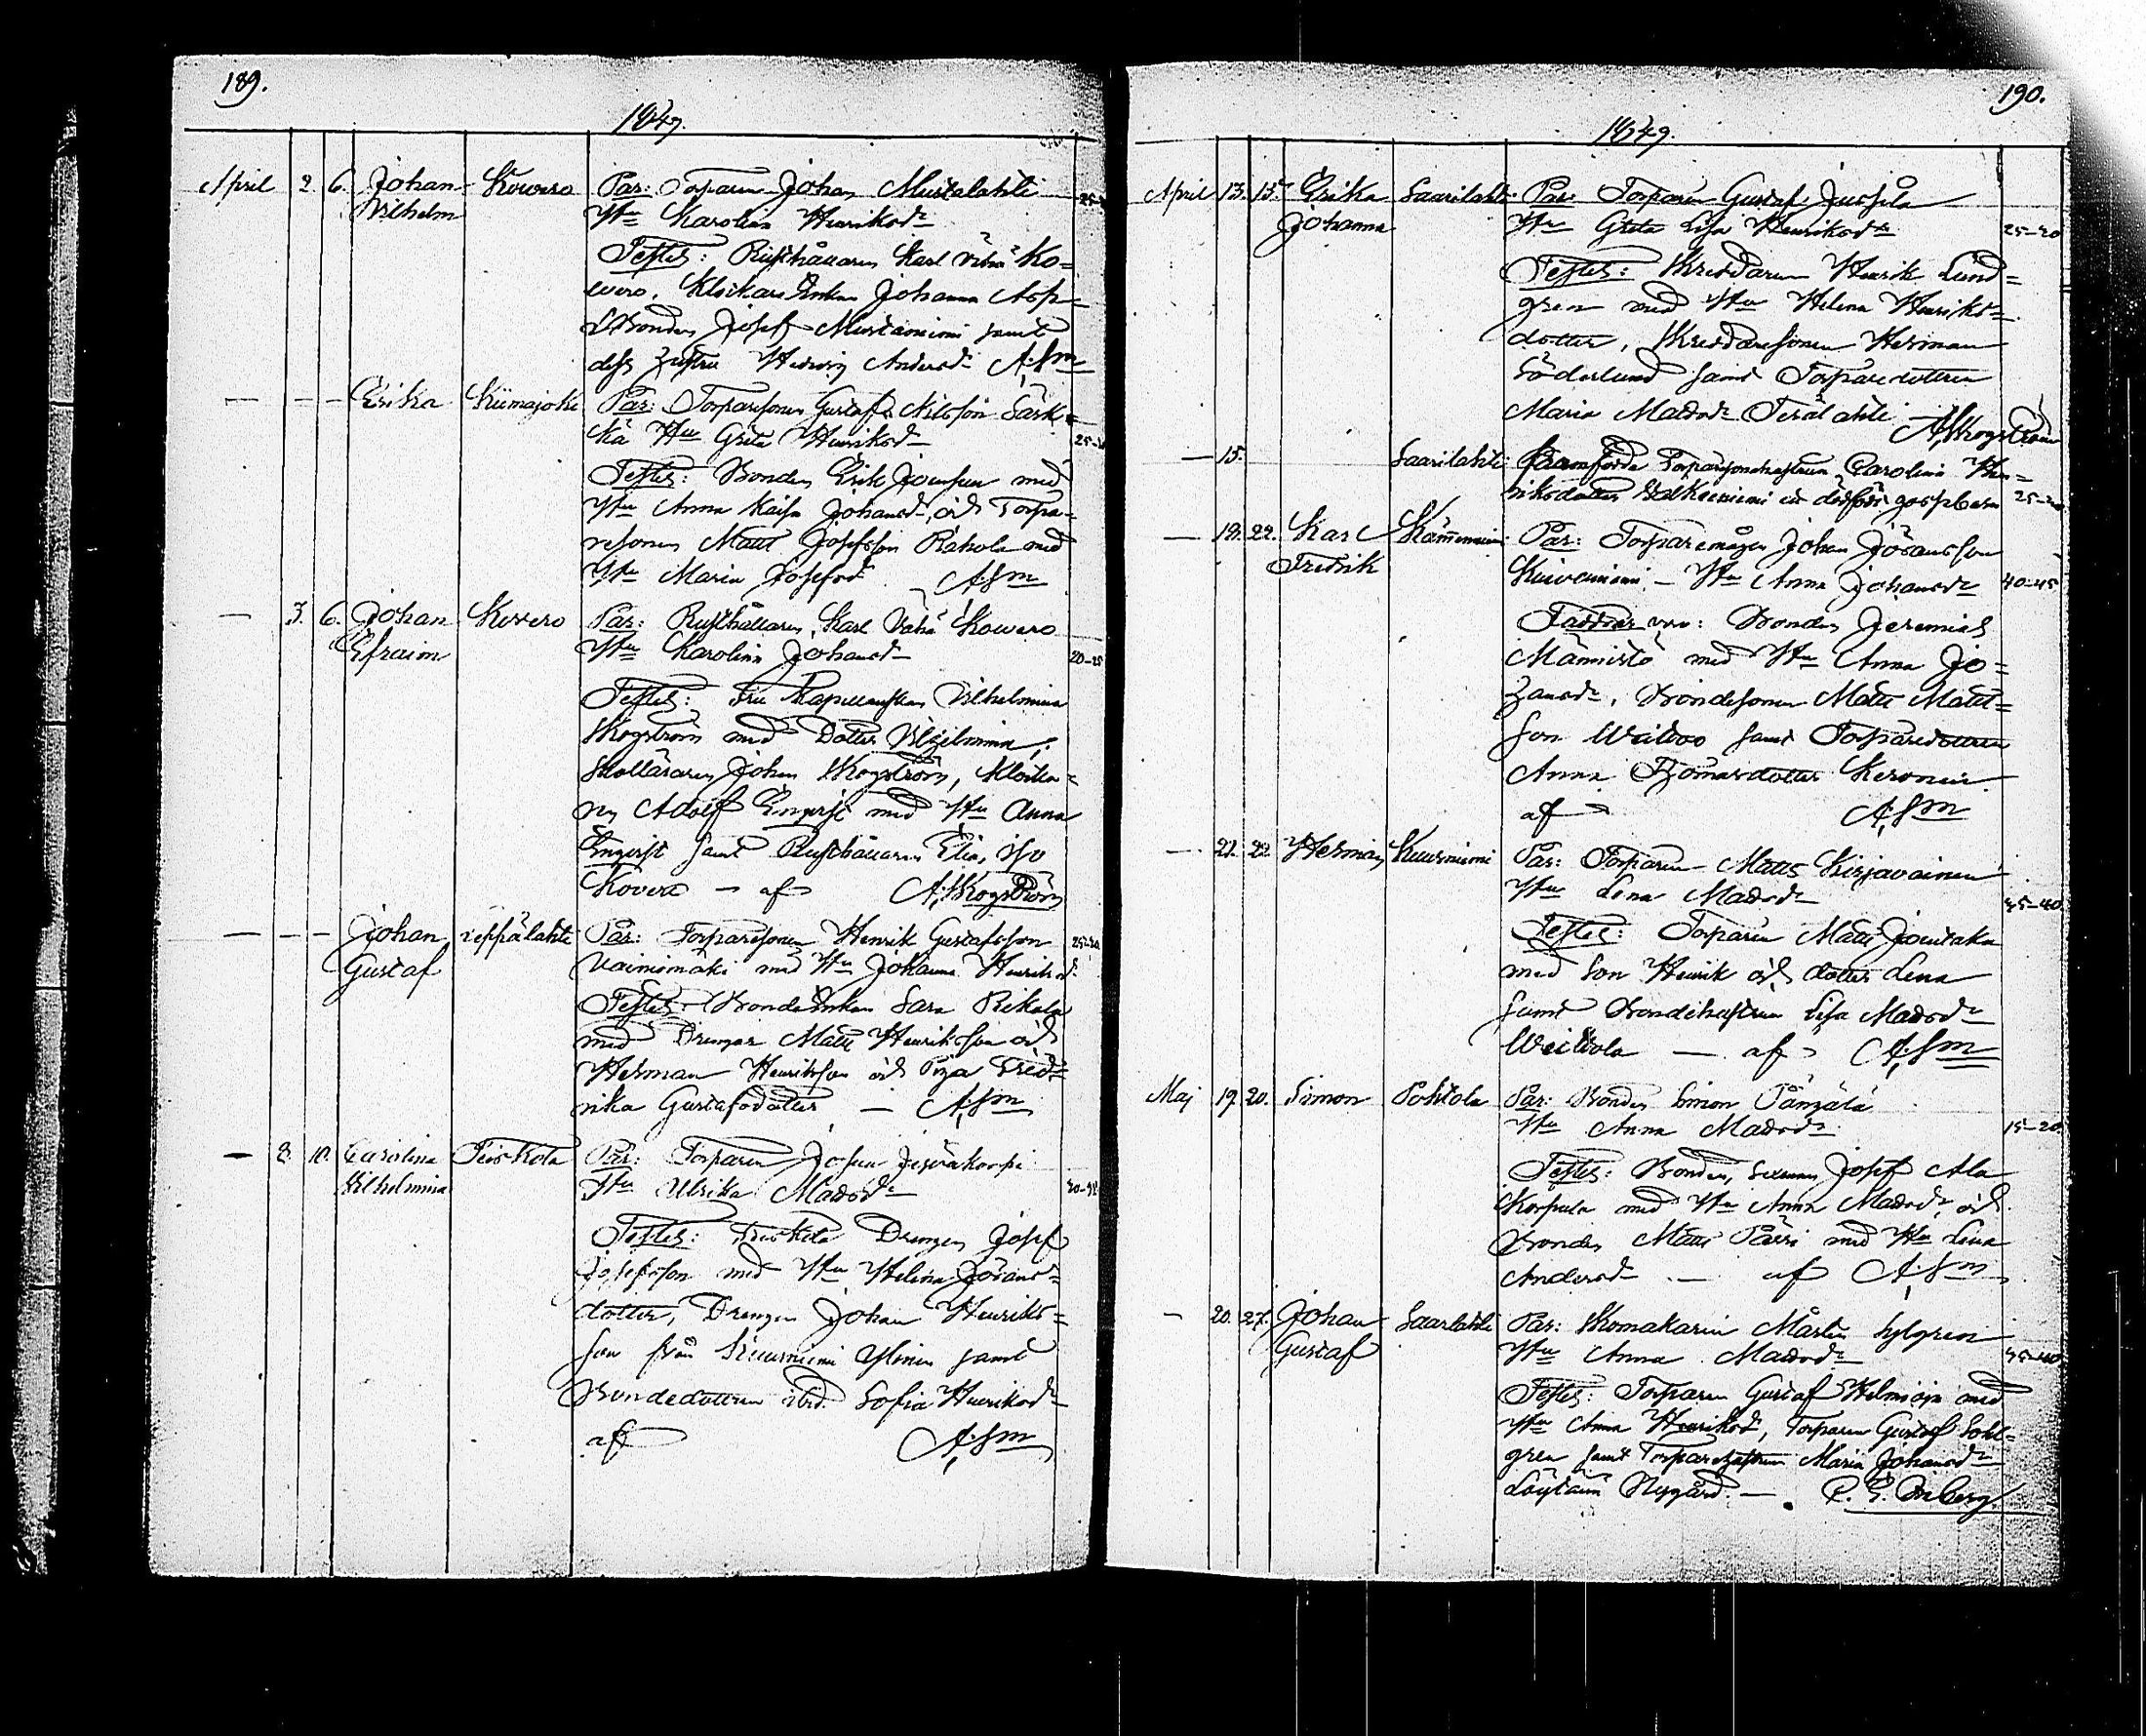 189.
1849.
April 2. 6. Johan Kowero Par: Torparen Johan Mustalahti
Vilhelm Hu Karolina Henriksdr
Testes: Rusthållaren Karl Vähä Ko=
wero, Klockare Enkan Johanna Asp
Bonden Josef Mustaniemi samt
dess hustru Hedvig Andersdr A. Sm
— — — Erika Kiimajoki Par: Torparesonen Gustaf Nilsson Särk=
kä Hu Greta Henriksdr 25-30
Testes: Bonden Erik Jounsuu med
Hu Anna Kaisa Johansdr, och Torpa=
resonen Matts Josefsson Rahola med
Hu Maria Josefsdr A. Sm
— 3. 6. Johan Kovero Par: Rusthållaren Karl Vähä Kowero
Efraim Hu Karolina Johansdr 20-25
Testes: Fru Kapellanskan Vilhelmina
Skogström med Dotter Vilhelmina,
Skolläraren Johan Skogström, Klocka=
ren Adolf Engvist med Hu Anna
Engvist samt Rusthållaren Elias Iso
Kovero — af A. Skogström
— — — Johan Leppälahti Par: Torparesonen Henrik Gustafsson 25-30
Gustaf Vainiomäki med Hu Johanna Henriksd.
Testes: Bonde Enkan Sara Rikala
med Drengar Matts Henriksson och
Herman Henriksson och Piga Fred=
rika Gustafsdotter — A. Sm
— 8. 10. Carolina Teiskola Par: Torparen Josua
Vilhelmina Hu Ulrika Mattsdr
Testes: Drengen Josef
Josefsson med Hu Helena Görans=
dotter, Drengen Johan Henriks=
son från Kuurniemi Ylinen samt
Bondedottren ibid. Sofia Henriksdr
af A. Sm
190.
1849.
April 13. 15. Erika Saarilahti Par: Torparen Gustaf Jussila
Johanna Hu Greta Lisa Henriksdr 25-30
Testes: Skreddaren Henrik Lund=
gren med Hu Helena Henriks=
dotter, Skreddaresonen Herman
Söderlund samt Torparedottren
Maria Mattsdr Terälahti A. Skogström
— 15. Saarilahti Framfödde Torparesonehustrun Carolina Hen=
riksdotter Valkeeniemi ett dödfödt gossebarn 25-30
— 19. 22. Karl Kämmenniemi Par: Torparemågen Johan Göransson
Fredrik Kuivaniemi — Hu Anna Johansdr 40-45
Faddrar voro: Bonden Jeremias
Männistö med Hu Anna Jo=
hansdr, Bondesonen Matts Matts=
son Weitvo samt Torparedottren
Anna Thomasdotter Keronen
af A. Sm
— 21. 22. Herman Kuurniemi Par: Torparen Matts Kirjavainen
Hu Lena Mattsdr 35-40
Testes: Torparen Matts
med Son Henrik och dotter Lena
samt Bondehustrun Lisa Mattsdr
Weittola — af A. Sm
Maj 19. 20. Simon Pohtola Par: Bonden Simon
Hu Anna Mattsdr 15-20
Testes: Bonden, Sexman Josef Ala
Korpula med Hu Anna Mattsdr och
Bonden Matts Pärri med Hu Lena
Andersdr — af A. Sm
— 20. 27. Johan Saarlahti Par: Skomakaren Mårten Sylgren
Gustaf Hu Anna Mattsdr 35-40
Testes: Torparen Gustaf Helminen med
Hu Anna Henriksdr, Torparen Gustaf Sohl=
gren samt Torparehustrun Maria Johansdr
Löytäin Nygård —